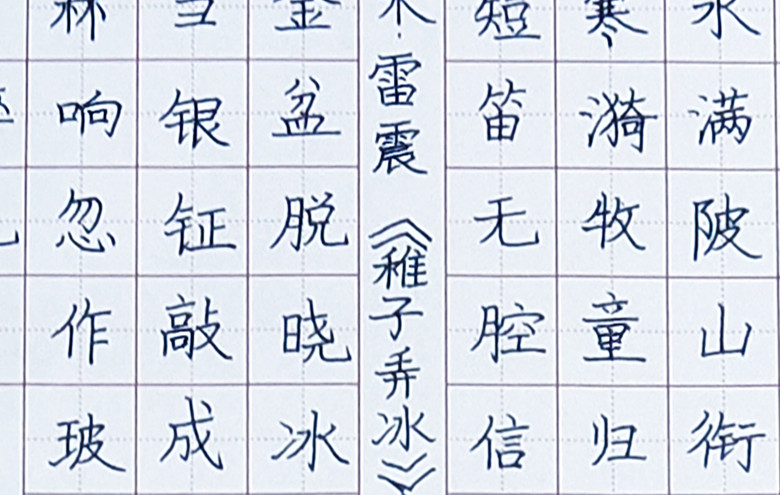 水满陂山衔
寒漪牧童归
短笛无腔信
雷震《稚子弄冰》
金盆脱晓冰
当银钲敲成
林响忽作玻